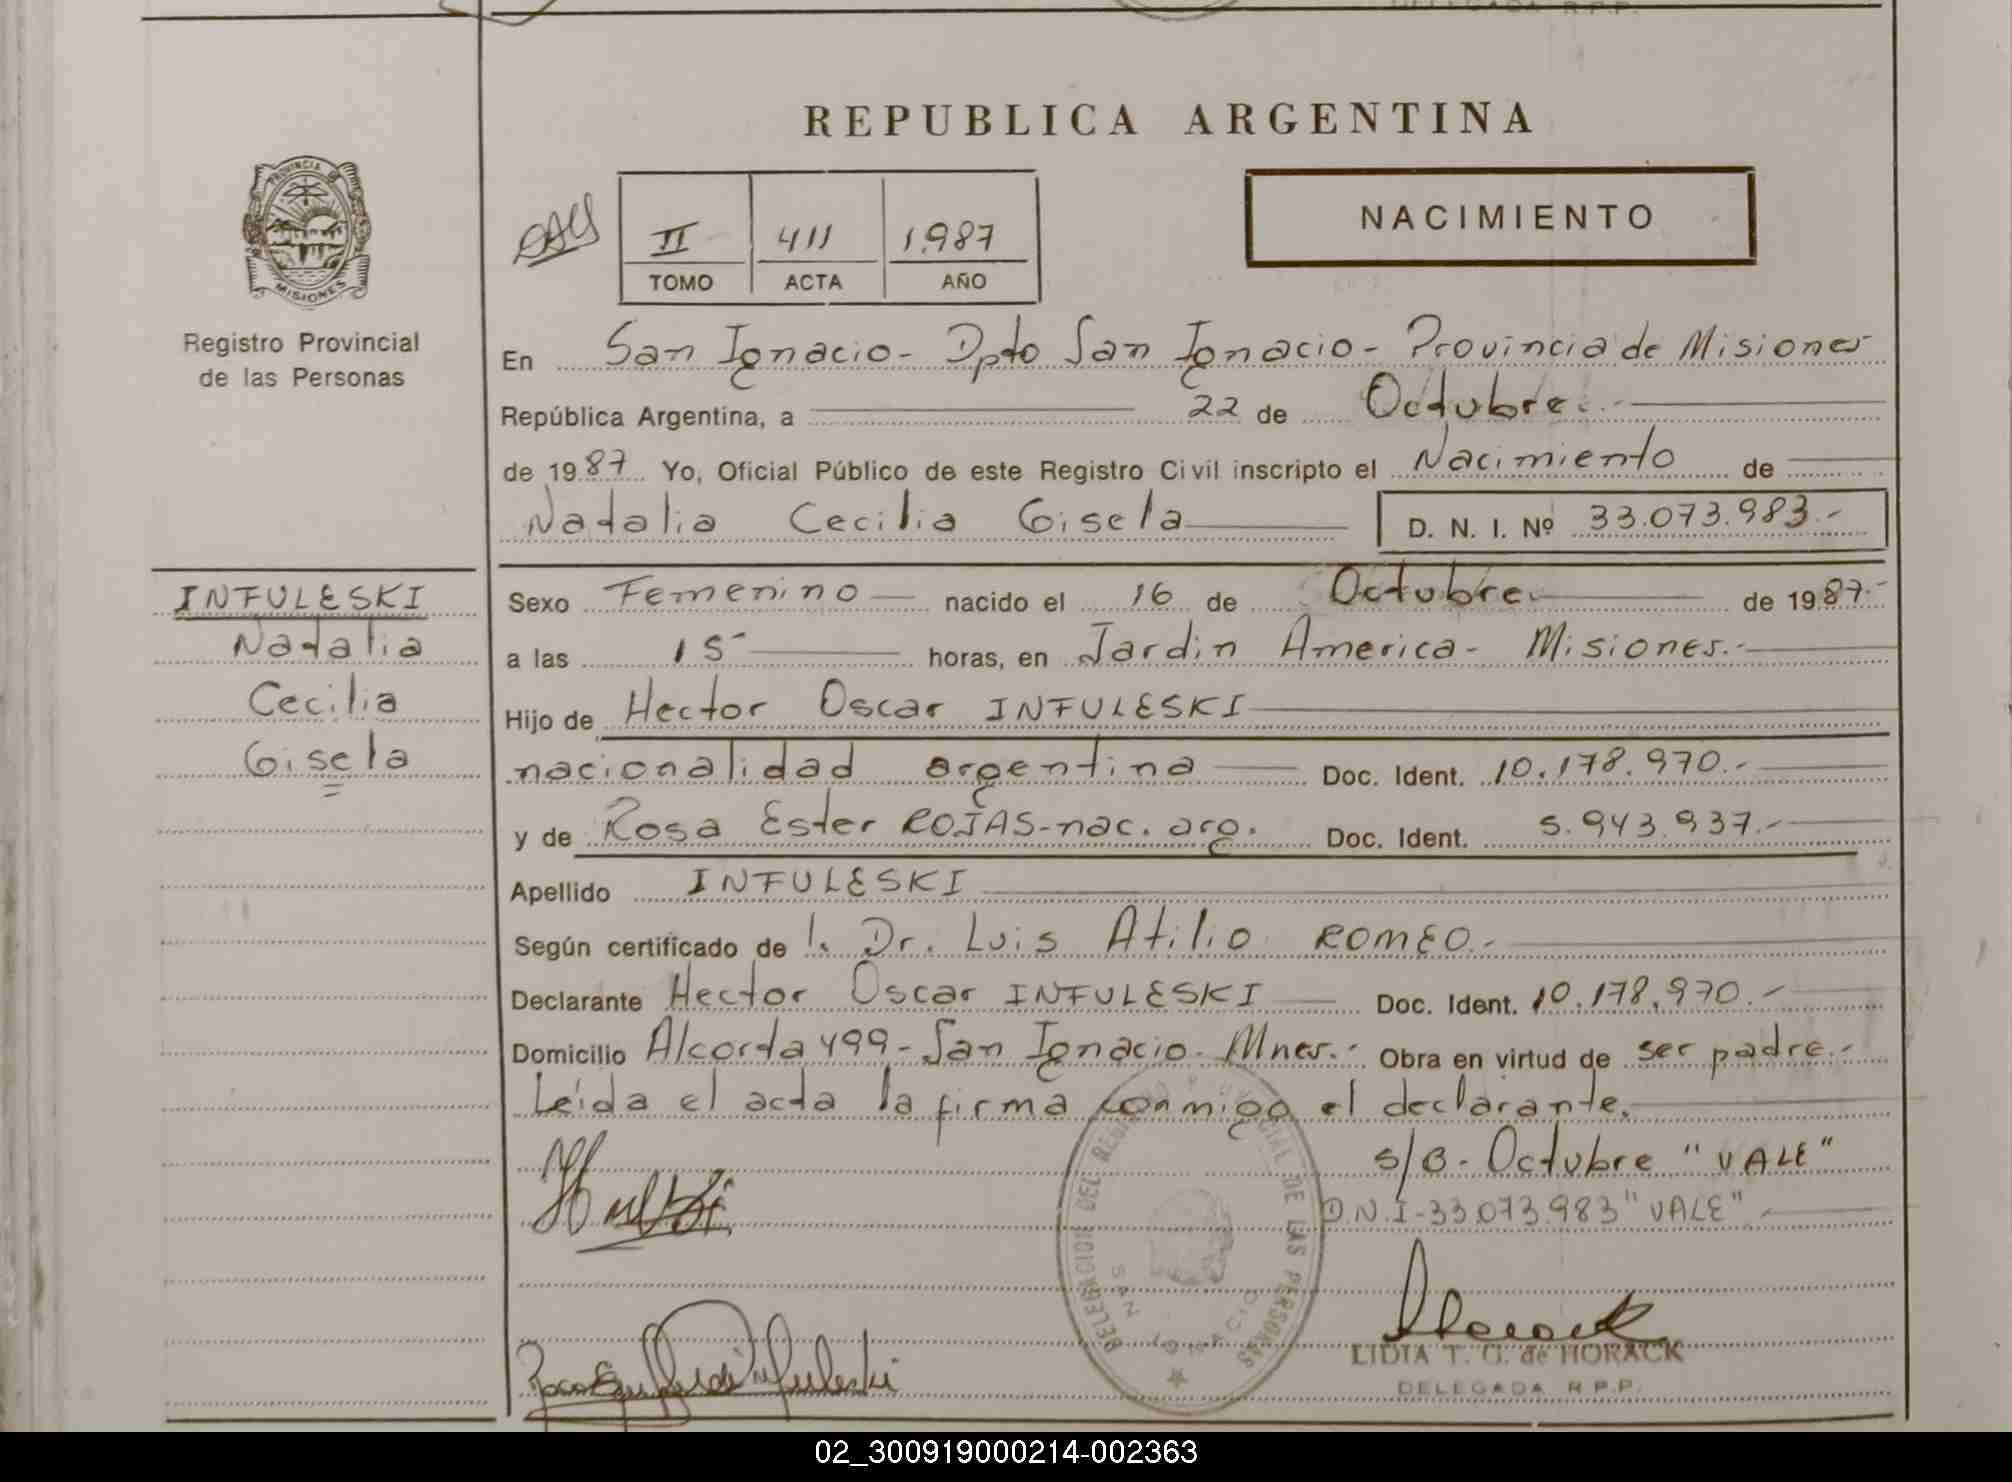 DELEGADA R.P.P.
REPUBLICA ARGENTINA
PROVINCIA DE
MISIONES
Registro Provincial
de las Personas
II 411 1.987
TOMO ACTA AÑO
NACIMIENTO
En San Ignacio- Dpto San Ignacio- Provincia de Misiones
República Argentina, a 22 de Octubre.-
de 1987 Yo, Oficial Público de este Registro Civil inscripto el Nacimiento de
Natalia Cecilia Gisela D. N. I. Nº 33.073.983.-
INFULESKI
Natalia
Cecilia
Gisela
Sexo Femenino nacido el 16 de Octubre. de 1987.-
a las 15 horas, en Jardin America- Misiones.-
Hijo de Hector Oscar INFULESKI
nacionalidad argentina Doc. Ident. 10.178.970.-
y de Rosa Ester ROJAS-nac. arg. Doc. Ident. 5.943.937.-
Apellido INFULESKI
Según certificado de l. Dr. Luis Atilio ROMEO.-
Declarante Hector Oscar INFULESKI Doc. Ident. 10.178.970.-
Domicilio Alcorta 499- San Ignacio- Mnes.- Obra en virtud de ser padre.-
Leída el acta la firma conmigo el declarante.
s/B- Octubre "VALE"
D.N.I-33.073.983 "VALE"
DELEGACION DEL REGISTRO PROVINCIAL DE LAS PERSONAS
SAN IGNACIO
Horack
LIDIA T. G. de HORACK
DELEGADA R.P.P.
02_300919000214-002363